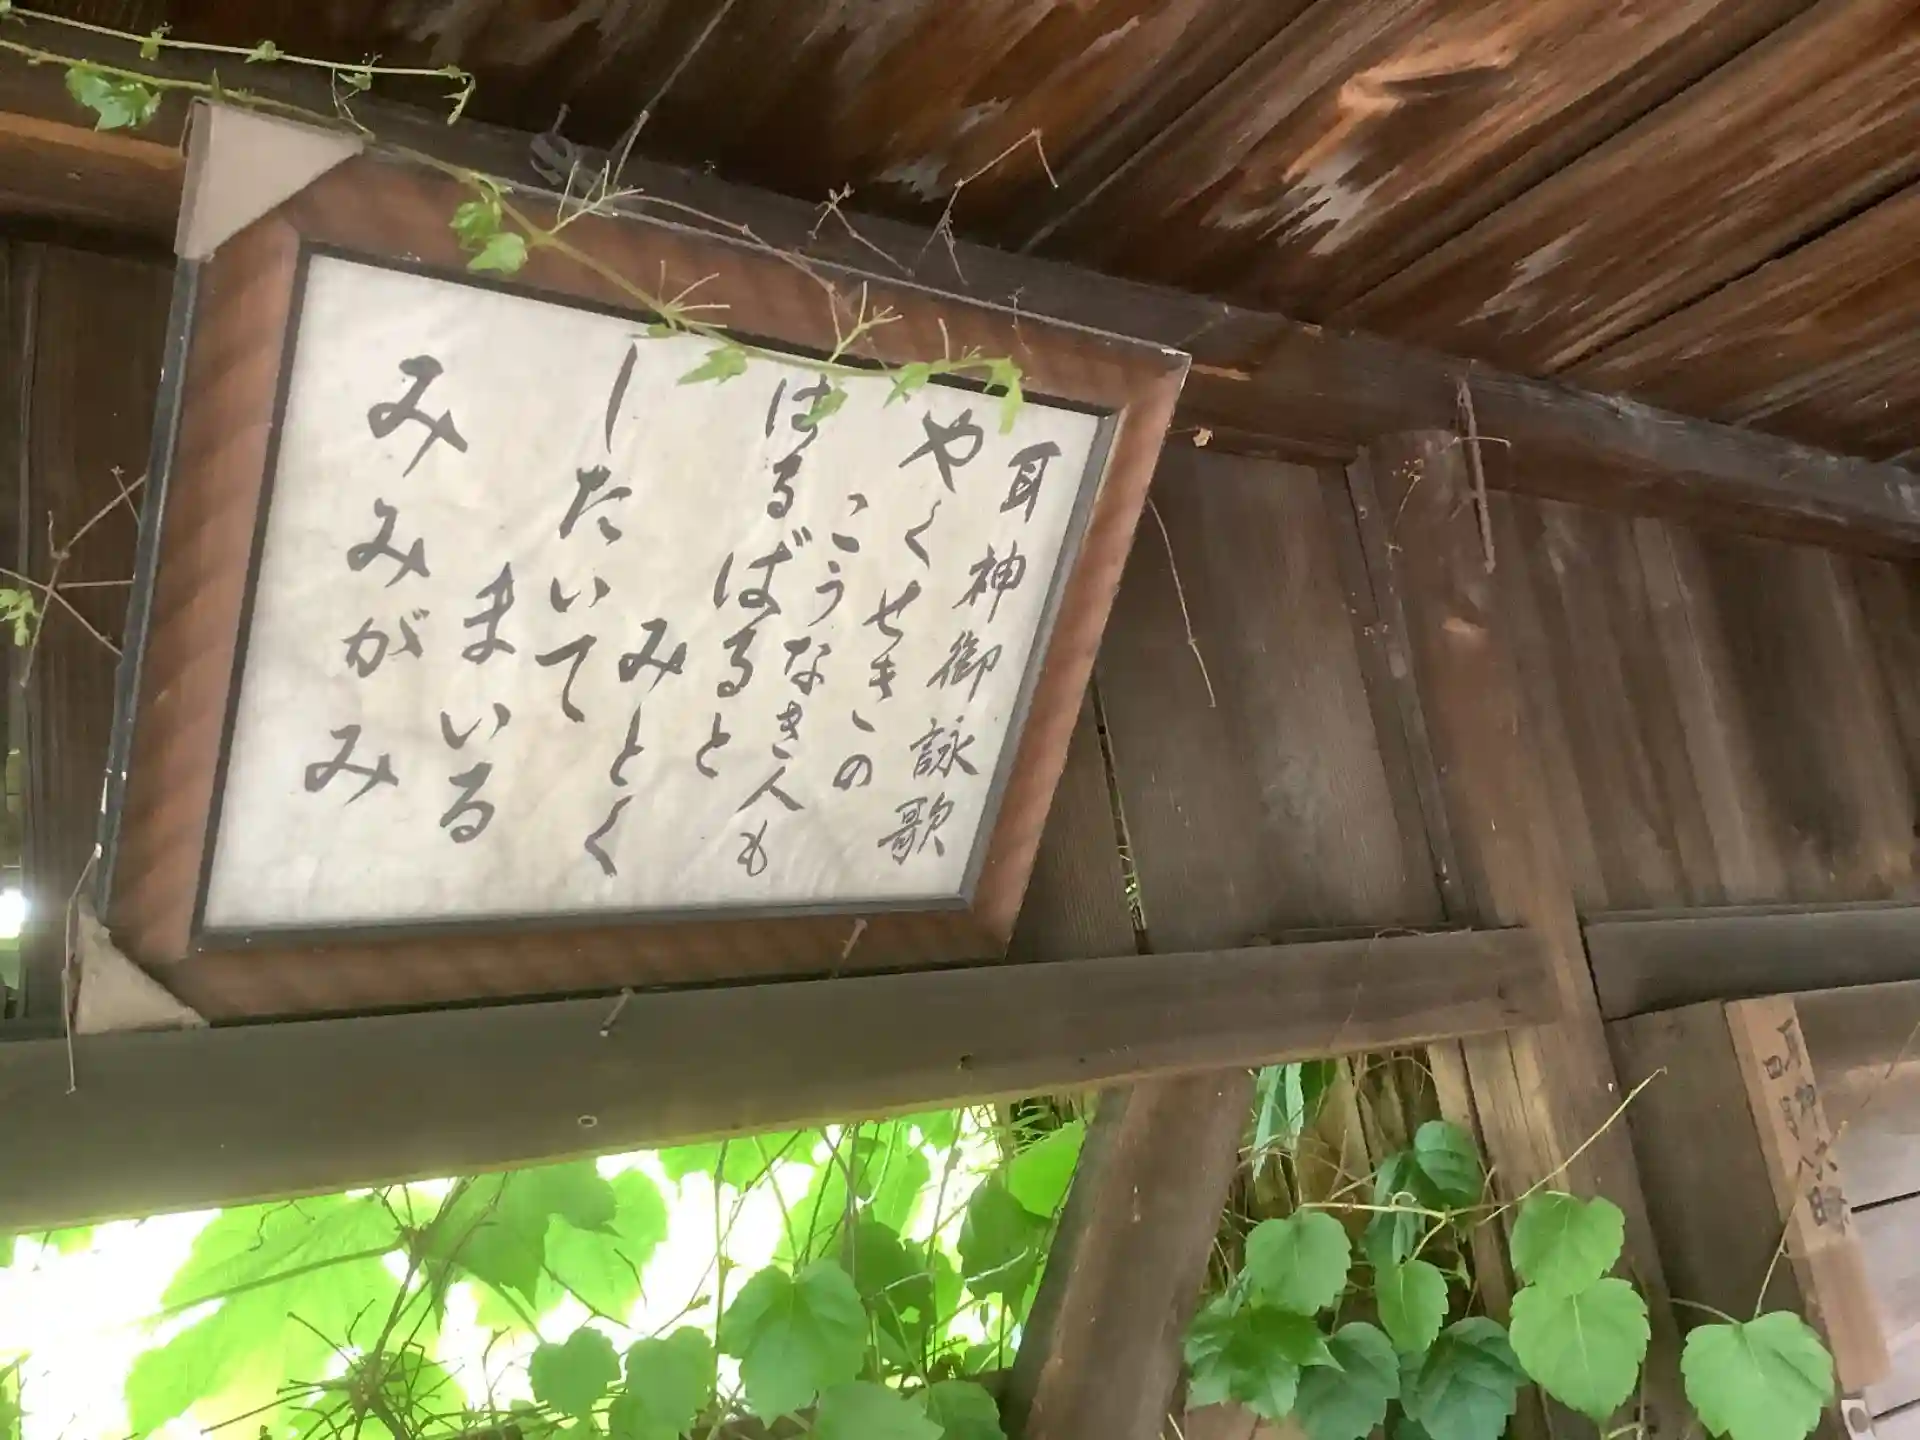 耳神御詠歌
やくせきの
こうなき人も
はるばると
みとく
したいて
まいる
みみがみ